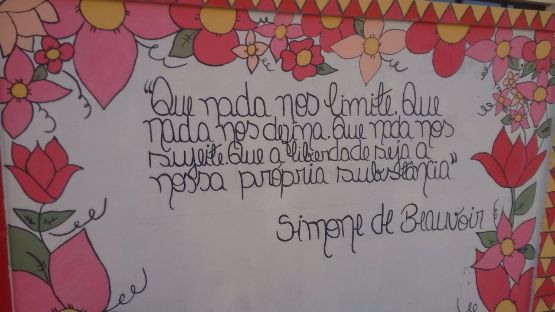 "Que nada nos limite. Que
nada nos defina. Que nada nos
sujeite. Que a liberdade seja a
nossa própria substância"
Simone de Beauvoir